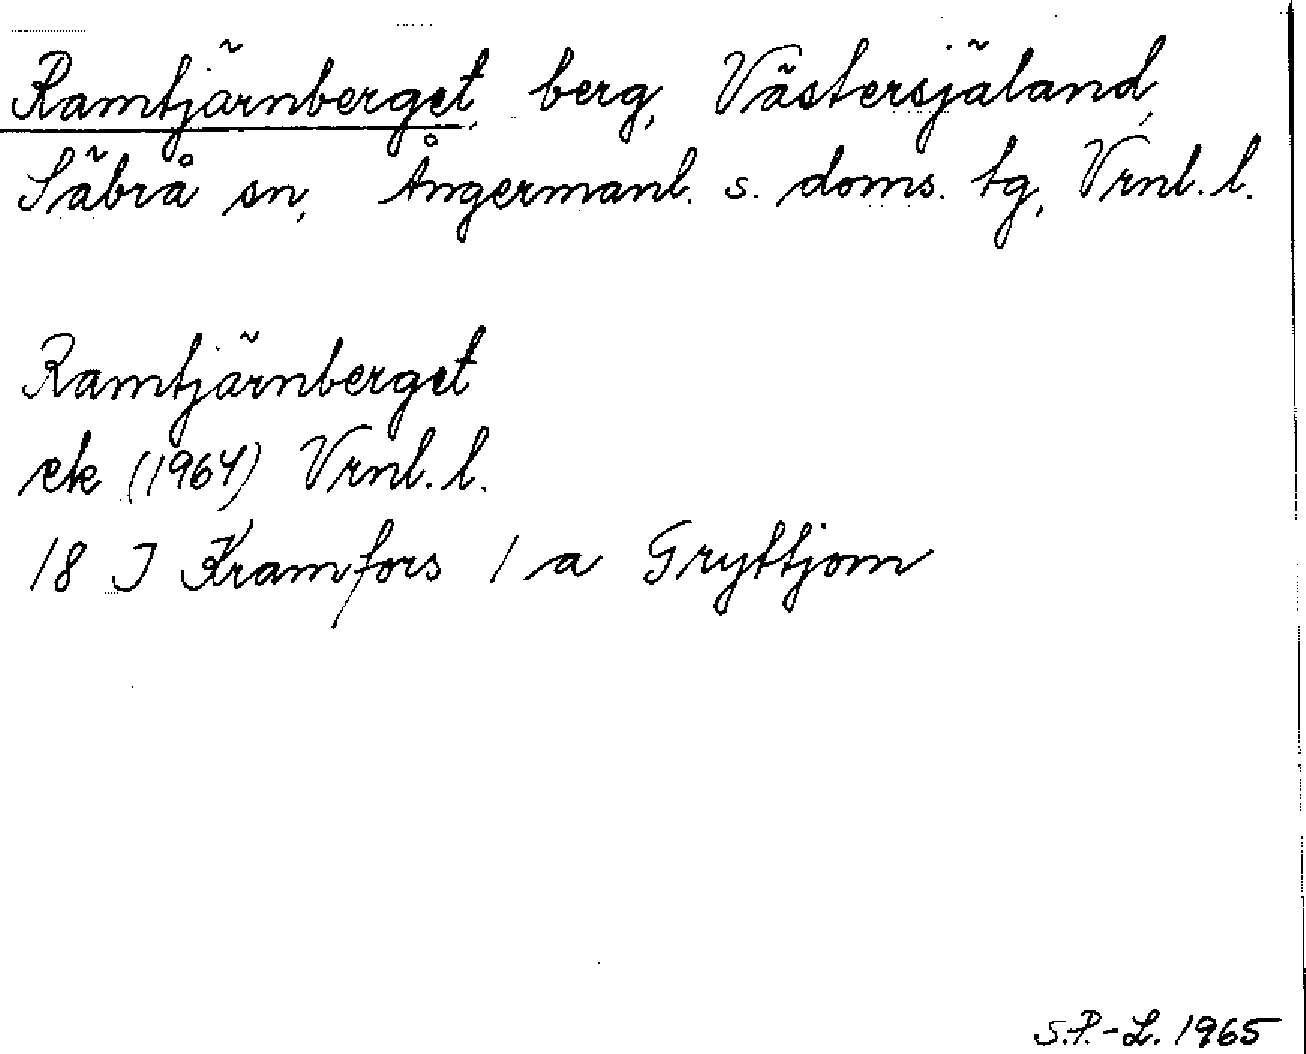 Ramtjärnberget, berg, Västersjäland,
Säbrå sn, Ångermanl. s. doms. tg, Vrnl. l.
Ramtjärnberget
ek (1964) Vrnl. l.
18 I Kramfors 1 a Gryttjom
S.P.-L. 1965